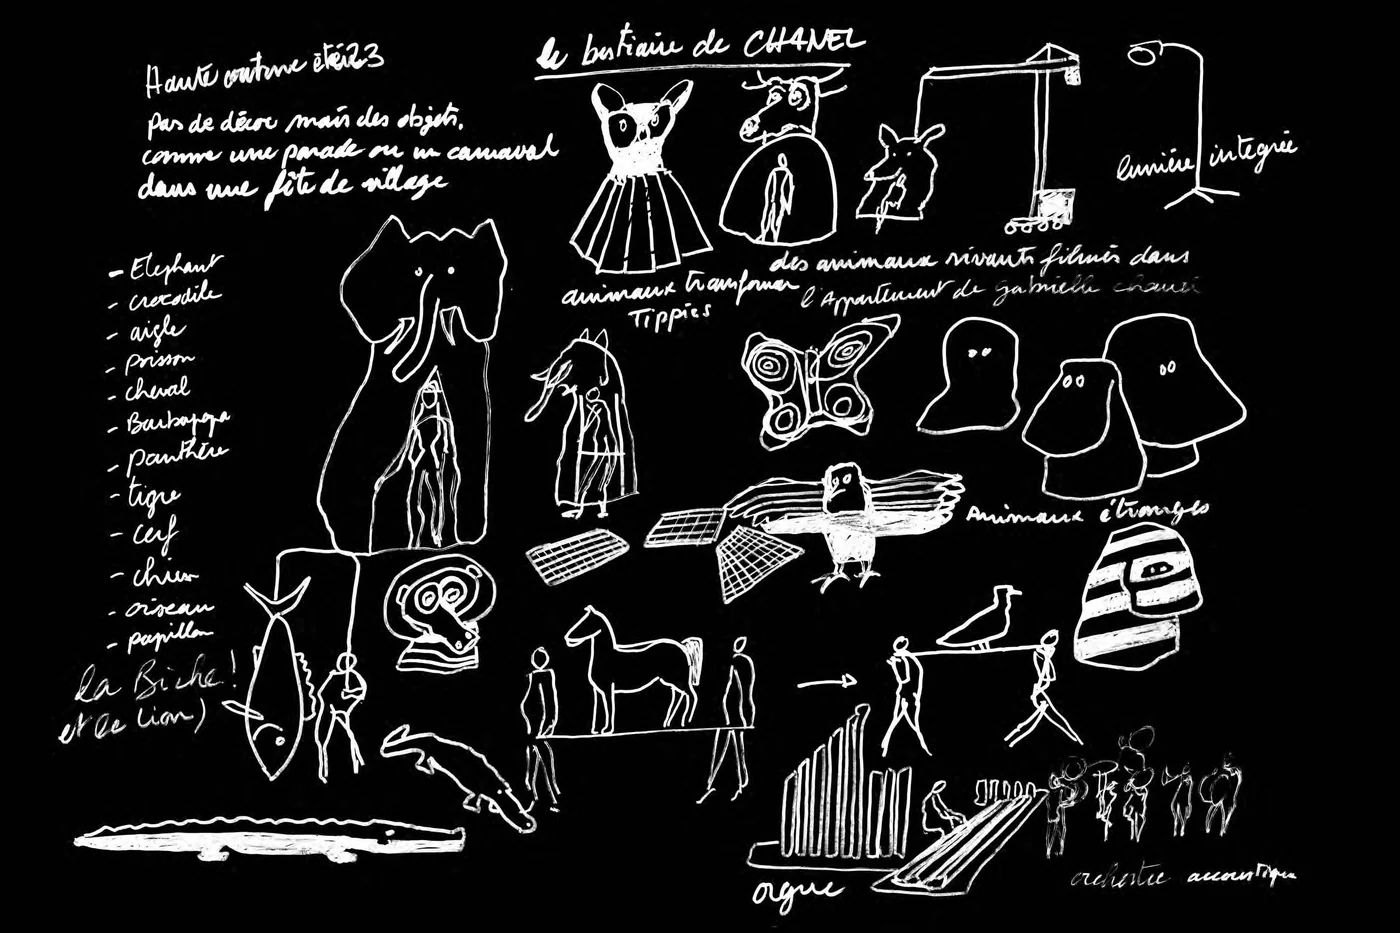 Haute couture été 23
le bestiaire de CHANEL
Pas de décor mais des objets,
comme une parade ou un carnaval
dans une fête de village
lumière integrée
des animaux vivants filmés dans
l'Appartement de gabrielle chanel
animaux transformer
Tippies
- Elephant
- crocodile
- aigle
- poisson
- cheval
- Barbapapa
- panthère
- tigre
- cerf
- chien
- oiseau
- papillon
la Biche!
et le lion)
Animaux étranges
orgue
orchestre accoustique